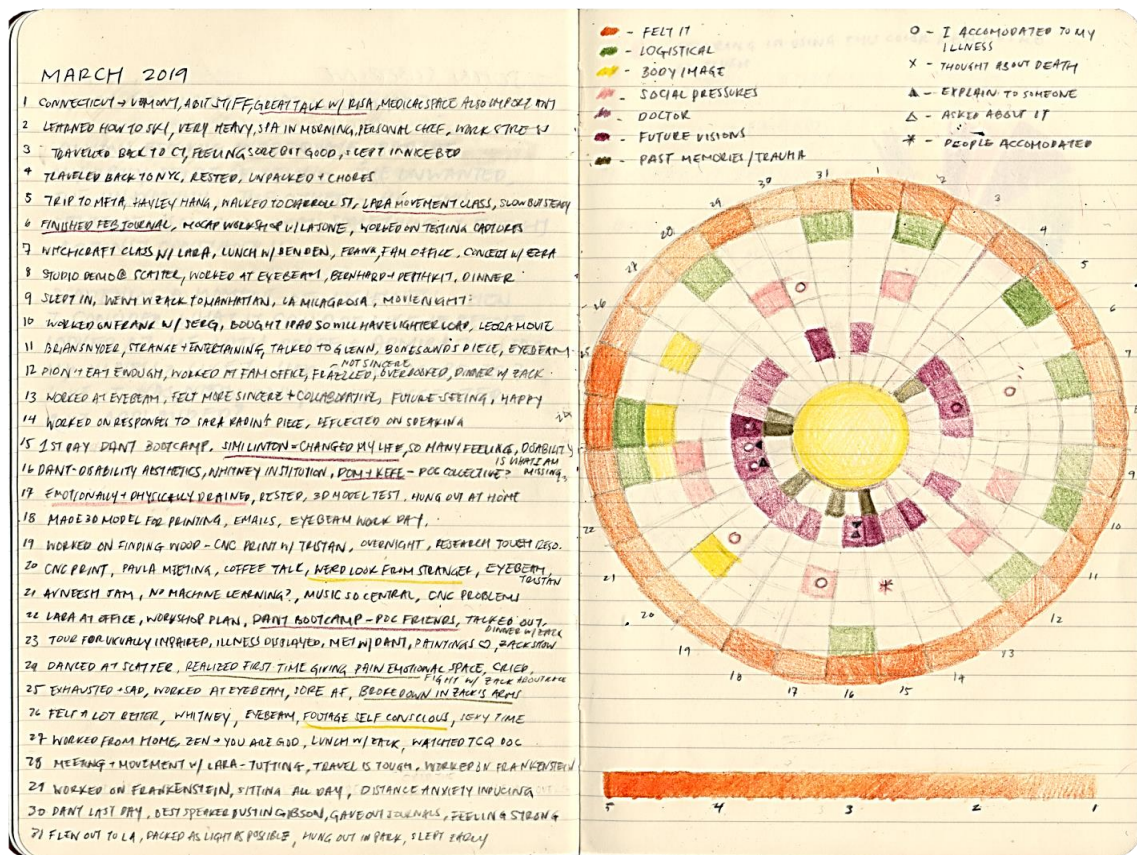 MARCH 2019
1 CONNECTICUT → VERMONT, A BIT STIFF, GREAT TALK W/ RISA, MEDICAL SPACE ALSO IMPORTANT
2 LEARNED HOW TO SKI, VERY HEAVY, SPA IN MORNING, PERSONAL CHEF, WORK STRESS
3 TRAVELLED BACK TO CT, FEELING SORE BUT GOOD, SLEPT IN NICE BED
4 TRAVELED BACK TO NYC, RESTED, UNPACKED + CHORES
5 TRIP TO META, HAYLEY HANG, WALKED TO CARROLL ST, LARA MOVEMENT CLASS, SLOW BUT STEADY
6 FINISHED FEB JOURNAL, MOCAP WORKSHOP W/ LAJUNE, WORKED ON TESTING CAPTURES
7 WITCHCRAFT CLASS W/ LARA, LUNCH W/ BENDEN, FRANK, FAM OFFICE, CONCERT W/ EZRA
8 STUDIO DEMO @ SCATTER, WORKED AT EYEBEAM, BERNHARD + DEPTHKIT, DINNER
9 SLEPT IN, WENT BACK TO MANHATTAN, LA MILAGROSA, MOVIE NIGHT
10 WORKED ON FRANK W/ SERG, BOUGHT IPAD SO WILL HAVE LIGHTER LOAD, LEORA MOVIE
11 BRIAN SNYDER, STRANGE + ENTERTAINING, TALKED TO GLENN, BONE SOUNDS PIECE, EYEBEAM
NOT SINCERE
12 DIDN'T EAT ENOUGH, WORKED AT FAM OFFICE, FRAZZLED, OVERBOOKED, DINNER W/ ZACK
13 WORKED AT EYEBEAM, FELT MORE SINCERE + COLLABORATIVE, FUTURE SEEING, HAPPY
14 WORKED ON RESPONSE TO SARA PIECE, REFLECTED ON SPEAKING
15 1ST DAY DANT BOOTCAMP. SIMI LINTON = CHANGED MY LIFE, SO MANY FEELING, DISABILITY
IS WHAT I AM MISSING
16 DANT - DISABILITY AESTHETICS, WHITNEY INSTITUTION, DOM + KEFE - POC COLLECTIVE?
17 EMOTIONALLY + PHYSICALLY DRAINED, RESTED, 3D MODEL TEST, HUNG OUT AT HOME
18 MADE 3D MODEL FOR PRINTING, EMAILS, EYEBEAM WORK DAY.
19 WORKED ON FINDING WOOD - CNC PRINT W/ TRISTAN, OVERNIGHT, RESEARCH TOUCH
20 CNC PRINT, PAULA MEETING, COFFEE TALK, WEIRD LOOK FROM STRANGER, EYEBEAM,
TRISTAN
21 AVNEESH JAM, NO MACHINE LEARNING?, MUSIC SO CENTRAL, CNC PROBLEMS
22 LARA AT OFFICE, WORKSHOP PLAN, DANT BOOTCAMP - POC FRIENDS, TALKED OUT,
DINNER W/ ZACK
23 TOUR FOR VISUALLY IMPAIRED, ILLNESS DISPLAYED, MET W/ DANT, PAINTINGS ♡, ZACK SHOW
24 DANCED AT SCATTER, REALIZED FIRST TIME GIVING PAIN EMOTIONAL SPACE, CRIED,
FIGHT W/ ZACK ABOUT
25 EXHAUSTED + SAD, WORKED AT EYEBEAM, SORE AF, BROKE DOWN IN ZACK'S ARMS
26 FELT A LOT BETTER, WHITNEY, EYEBEAM, FOOTAGE SELF CONSCIOUS, SEXY TIME
27 WORKED FROM HOME, ZEN + YOU ARE GOD, LUNCH W/ ZACK, WATCHED TCQ DOC
28 MEETING + MOVEMENT W/ LARA - TUTTING, TRAVEL IS TOUGH, WORKED ON FRANKENSTEIN
29 WORKED ON FRANKENSTEIN, SITTING ALL DAY, DISTANCE ANXIETY INDUCING
30 DANT LAST DAY, BEST SPEAKER DUSTIN GIBSON, GAVE OUT JOURNALS, FEELING STRONG
31 FLEW OUT TO LA, PACKED AS LIGHT AS POSSIBLE, HUNG OUT IN PARK, SLEPT EARLY
- FELT IT
- LOGISTICAL
- BODY IMAGE
- SOCIAL PRESSURES
- DOCTOR
- FUTURE VISIONS
- PAST MEMORIES / TRAUMA
O - I ACCOMODATED TO MY ILLNESS
X - THOUGHT ABOUT DEATH
▲ - EXPLAIN TO SOMEONE
△ - ASKED ABOUT IT
* - PEOPLE ACCOMODATED
1
2
3
4
5
6
7
9
10
11
12
13
14
15
16
17
18
19
20
21
22
26
27
28
29
30
31
5 4 3 2 1